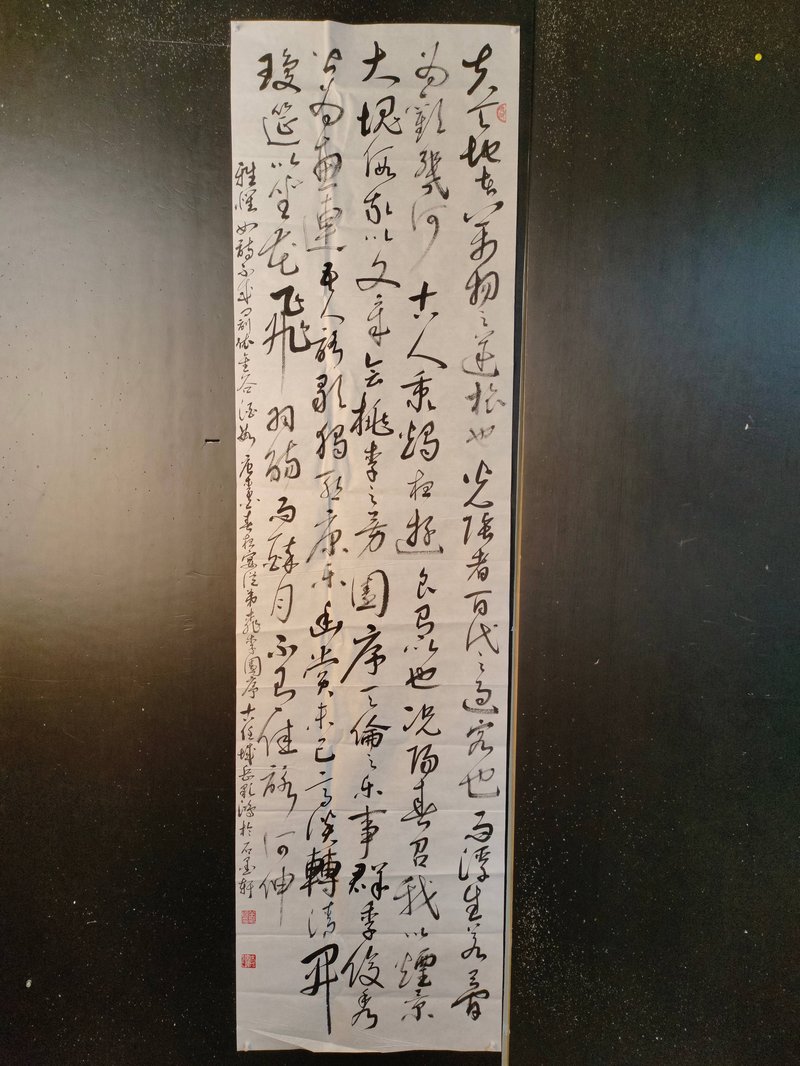 夫天地者萬物之逆旅也光陰者百代之過客也而浮生若夢
為歡幾何古人秉燭夜遊良有以也況陽春召我以煙景
大塊假我以文章會桃李之芳園序天倫之樂事群季俊秀
皆為惠連吾人詠歌獨慚康樂幽賞未已高談轉清開
瓊筵以坐花飛羽觴而醉月不有佳詠何伸
雅懷如詩不成罰依金谷酒數 唐李白春夜宴從弟桃李園序 古任城岳鴻於石墨軒